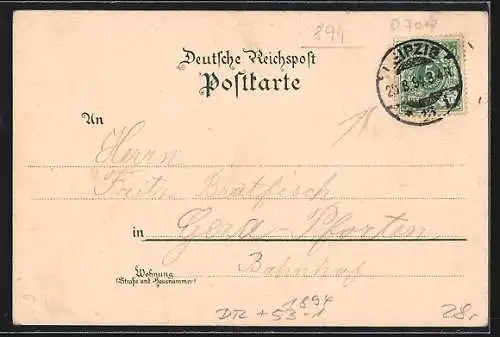 894
D 7048
LEIPZIG
Deutsche Reichspost
Postkarte
An
Herrn
Fritz Bratfisch
in Gera-Pforten
Bahnhof
Wohnung
(Straße und Hausnummer)
1894
DR + 53-1
28,-